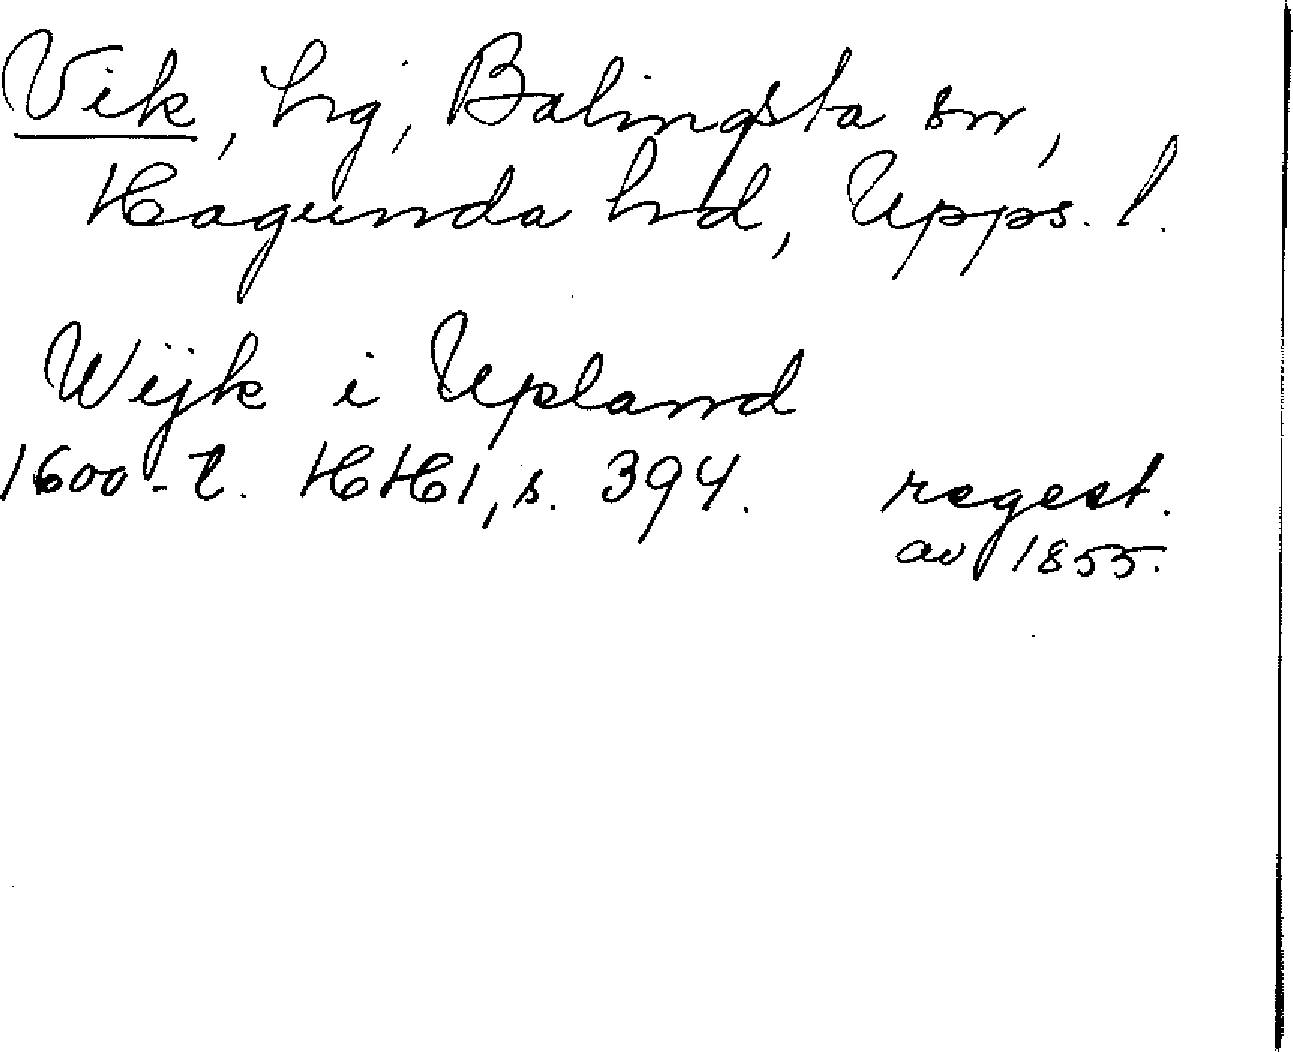 Vik, hg, Balingsta sn,
Hagunda hd, Upps. l.
Wijk i Upland
1600-t. HH1, s. 394. regest.
av 1855.